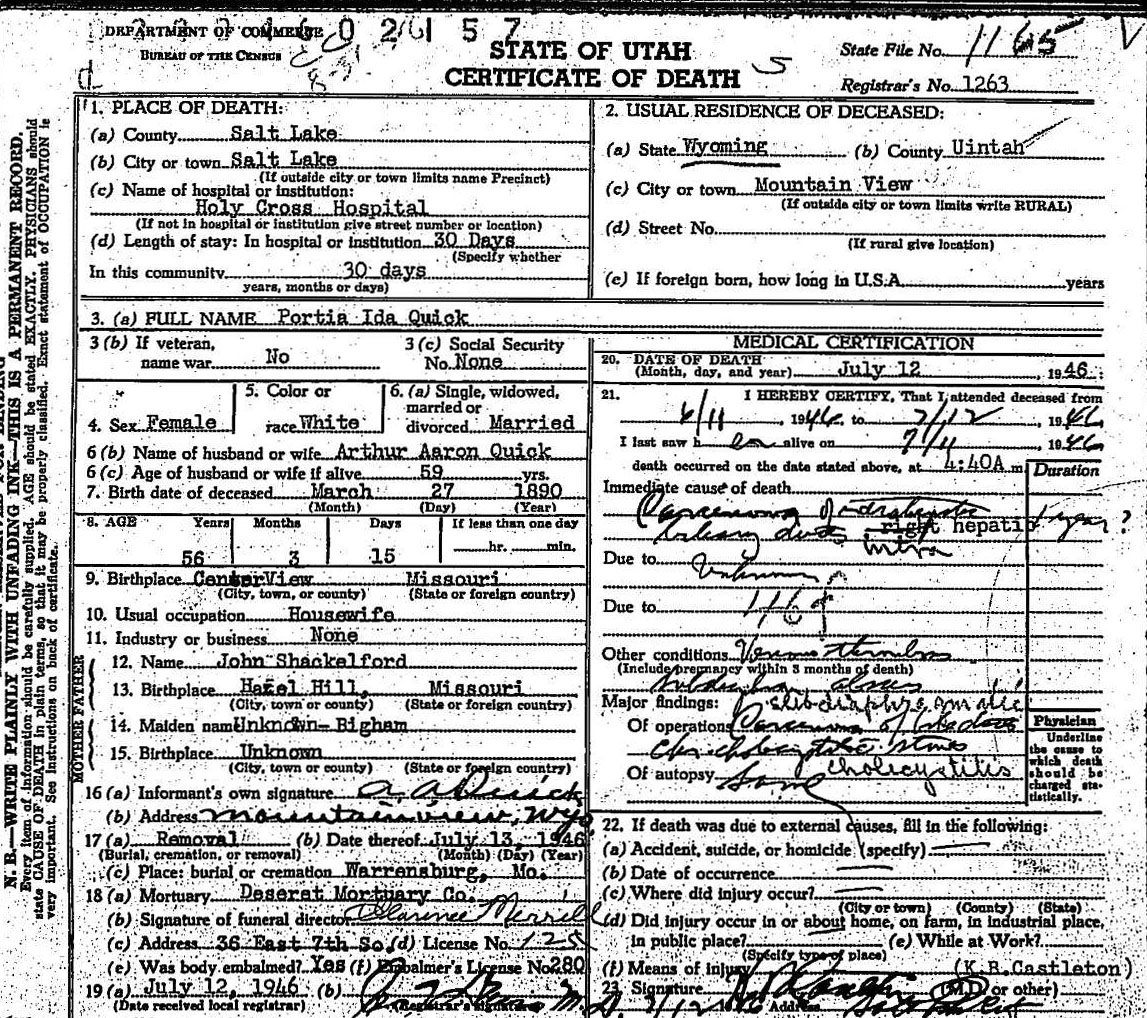 DEPARTMENT OF COMMERCE
BUREAU OF THE CENSUS
STATE OF UTAH
CERTIFICATE OF DEATH
State File No. 1165
Registrar's No. 1263
N. B.—WRITE PLAINLY WITH UNFADING INK—THIS IS A PERMANENT RECORD.
Every item of information should be carefully supplied. AGE should be stated EXACTLY. PHYSICIANS should
state CAUSE OF DEATH in plain terms, so that it may be properly classified. Exact statement of OCCUPATION is
very important. See instructions on back of certificate.
1. PLACE OF DEATH:
(a) County Salt Lake
(b) City or town Salt Lake
(If outside city or town limits name Precinct)
(c) Name of hospital or institution:
Holy Cross Hospital
(If not in hospital or institution give street number or location)
(d) Length of stay: In hospital or institution 30 Days
(Specify whether
In this community 30 days
years, months or days)
2. USUAL RESIDENCE OF DECEASED:
(a) State Wyoming (b) County Uintah
(c) City or town Mountain View
(If outside city or town limits write RURAL)
(d) Street No.
(If rural give location)
(e) If foreign born, how long in U.S.A. years
3. (a) FULL NAME Portia Ida Quick
3 (b) If veteran, name war No
3 (c) Social Security No. None
4. Sex Female
5. Color or race White
6. (a) Single, widowed, married or divorced Married
6 (b) Name of husband or wife Arthur Aaron Quick
6 (c) Age of husband or wife if alive 59 yrs.
7. Birth date of deceased March 27 1890
(Month) (Day) (Year)
8. AGE Years Months Days If less than one day
56 3 15 hr. min.
9. Birthplace CenterView Missouri
(City, town, or county) (State or foreign country)
10. Usual occupation Housewife
11. Industry or business None
FATHER
12. Name John Shackelford
13. Birthplace Hazel Hill, Missouri
(City, town or county) (State or foreign country)
MOTHER
14. Maiden name Unknown- Bigham
15. Birthplace Unknown
(City, town or county) (State or foreign country)
16 (a) Informant's own signature A. A. Quick
(b) Address Mountain View, Wyo
17 (a) Removal (b) Date thereof July 13, 1946
(Burial, cremation, or removal) (Month) (Day) (Year)
(c) Place: burial or cremation Warrensburg, Mo.
18 (a) Mortuary Deseret Mortuary Co.
(b) Signature of funeral director Clarence Merrill
(c) Address 36 East 7th So. (d) License No. 125
(e) Was body embalmed? Yes (f) Embalmer's License No 280
19 (a) July 12, 1946 (b) M.D.
(Date received local registrar) (Registrar's signature)
MEDICAL CERTIFICATION
20. DATE OF DEATH
(Month, day, and year) July 12, 1946
21. I HEREBY CERTIFY, That I attended deceased from
6/11 1946 to 7/12, 1946
I last saw h er alive on 7/11 1946
death occurred on the date stated above, at 4:40A m. Duration
Immediate cause of death
Carcinoma of
biliary ducts right hepatic 1 year ?
intra
Due to Unknown
Due to
Other conditions Venous thrombosis
(Include pregnancy within 3 months of death)
Major findings: subdiaphragmatic
Of operations Carcinoma of
stones
cholecystitis
Of autopsy Same
Physician
Underline the cause to which death should be charged statistically.
22. If death was due to external causes, fill in the following:
(a) Accident, suicide, or homicide (specify)
(b) Date of occurrence
(c) Where did injury occur?
(City or town) (County) (State)
(d) Did injury occur in or about home, on farm, in industrial place,
in public place? (e) While at Work?
(Specify type of place)
(f) Means of injury (K.B.Castleton)
23. Signature (M.D. or other)
7/12 Address